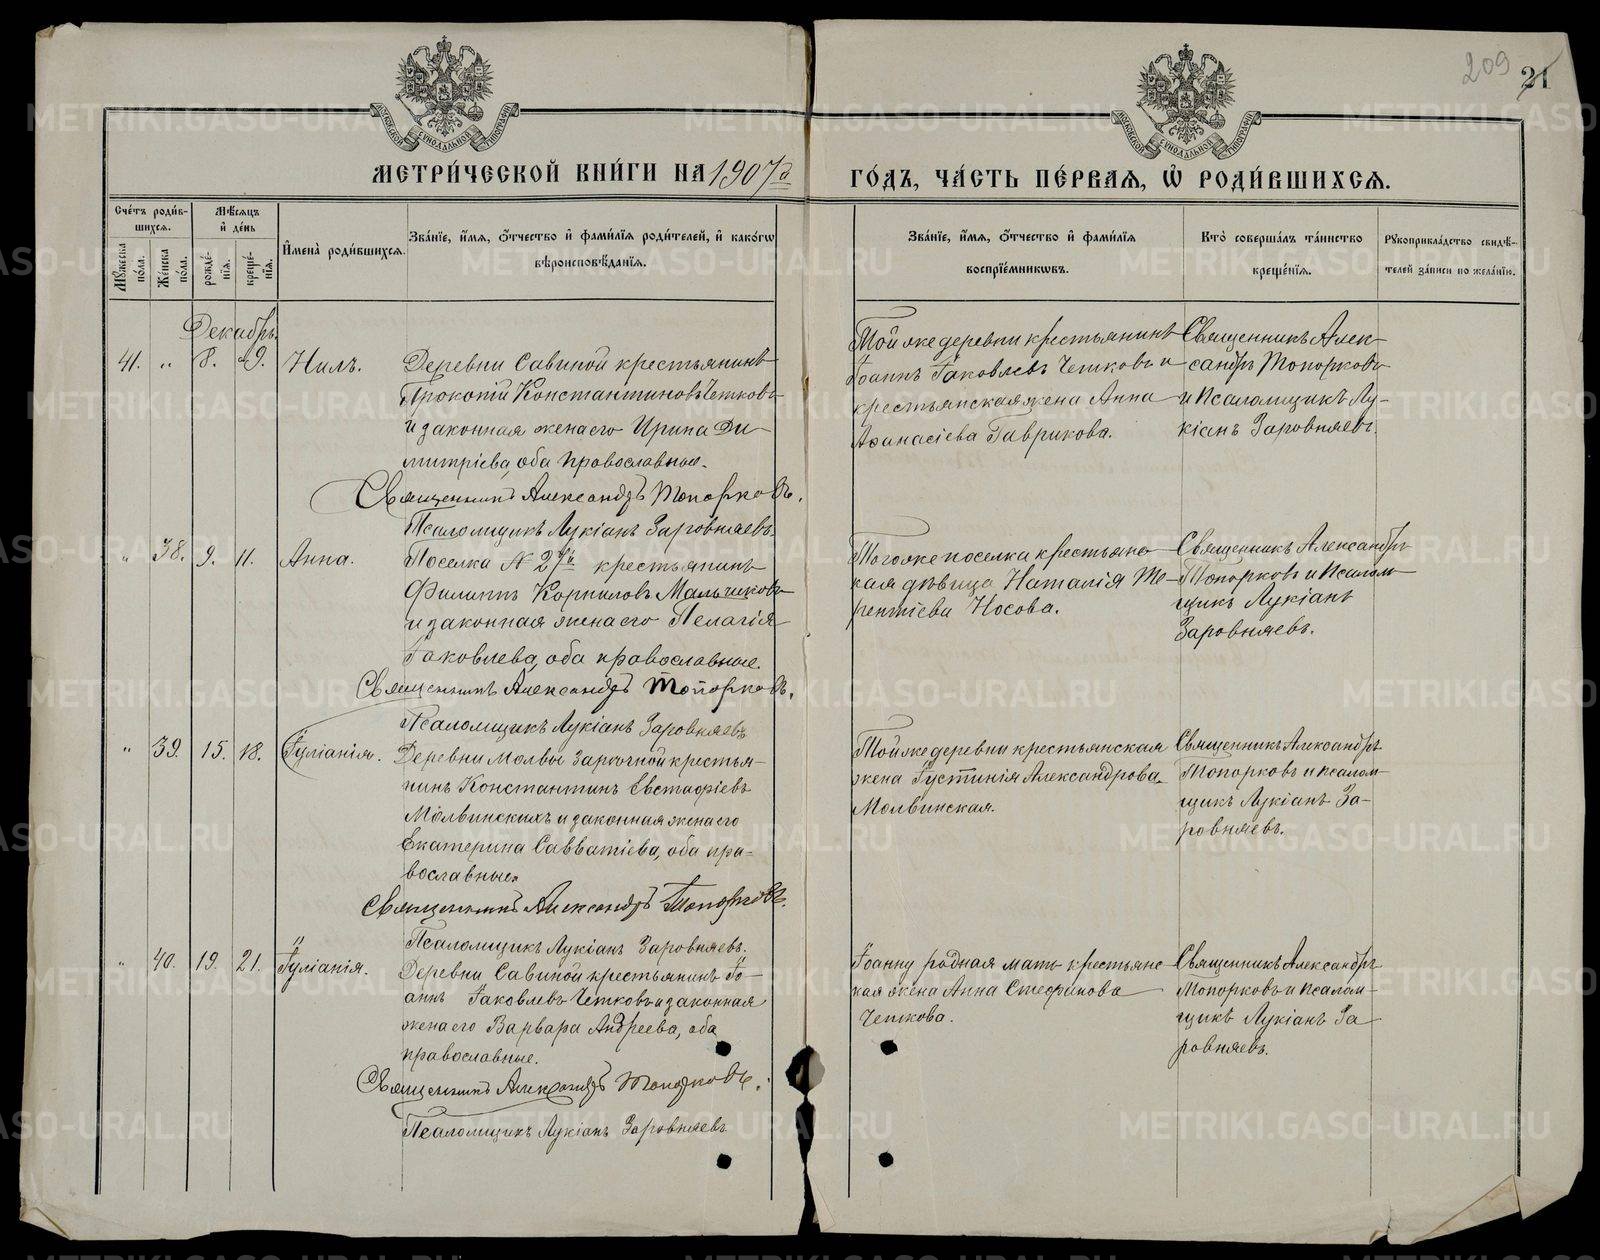 209
21
МОСКОВСКОЙ СѴНОДАЛЬНОЙ ТИПОГРАФІИ
МОСКОВСКОЙ СѴНОДАЛЬНОЙ ТИПОГРАФІИ
МЕТРИ́ЧЕСКОЙ КНИ́ГИ НА 1907й
ГО́ДЪ, ЧА́СТЬ ПЕ́РВАЯ, Ѡ҆ РОДИ́ВШИХСЯ.
Сче́тъ роди́в-
шихся.
Мѣ́сяцъ
и҆ де́нь
Мꙋ́жеска
по́ла.
Же́нска
по́ла.
рожде́-
нїя.
креще́-
нїя.
И҆мена̀ роди́вшихся.
Зва́нїе, и҆́мя, ѻ҆́тчество и҆ фами́лїя роди́телей, и҆ како́гѡ
вѣроисповѣ́данїя.
Зва́нїе, и҆́мя, ѻ҆́тчество и҆ фами́лїя
воспрїе́мникѡвъ.
Кто̀ соверша́лъ та́инство
креще́нїя.
Рꙋкоприкла́дство свидѣ́-
телей за́писи по жела́нїю.
Декабрь.
41. „ 8. 9. Нилъ.
Деревни Савиной крестьянинъ
Прокопій Константиновъ Четковъ
и законная жена его Ирина Ди-
митріева, оба православные.
Священникъ Александръ Топорковъ.
Псаломщикъ Лукіанъ Заровняевъ.
Той же деревни крестьянинъ
Іоаннъ Іаковлевъ Четковъ и
крестьянская жена Анна
Аѳанасіева Гаврикова.
Священникъ Алек-
сандръ Топорковъ
и псаломщикъ Лу-
кіанъ Заровняевъ.
„ 38. 9. 11. Анна.
Поселка № 2й крестьянинъ
Филиппъ Корниловъ Мальчиковъ
и законная жена его Пелагія
Іаковлева, оба православные.
Священникъ Александръ Топорковъ.
Псаломщикъ Лукіанъ Заровняевъ
Того же поселка крестьянс-
кая дѣвица Наталія Те-
рентіева Носова.
Священникъ Александръ
Топорковъ и псалом-
щикъ Лукіанъ
Заровняевъ.
„ 39. 15. 18. Іуліанія.
Деревни Молвы Заречной крестья-
нинъ Константинъ Евстафіевъ
Молвинскихъ и законная жена его
Екатерина Савватіева, оба пра-
вославные.
Священникъ Александръ Топорковъ.
Псаломщикъ Лукіанъ Заровняевъ.
Той же деревни крестьянская
жена Іустинія Александрова
Молвинская.
Священникъ Александръ
Топорковъ и псалом-
щикъ Лукіанъ За-
ровняевъ.
„ 40. 19. 21. Іуліанія.
Деревни Савиной крестьянинъ Іо-
аннъ Іаковлевъ Четковъ и законная
жена его Варвара Андреева, оба
православные.
Священникъ Александръ Топорковъ.
Псаломщикъ Лукіанъ Заровняевъ
Іоанну родная мать крестьянс-
кая жена Анна Стефанова
Четкова.
Священникъ Александръ
Топорковъ и псалом-
щикъ Лукіанъ За
ровняевъ.
METRIKI.GASO-URAL.RU